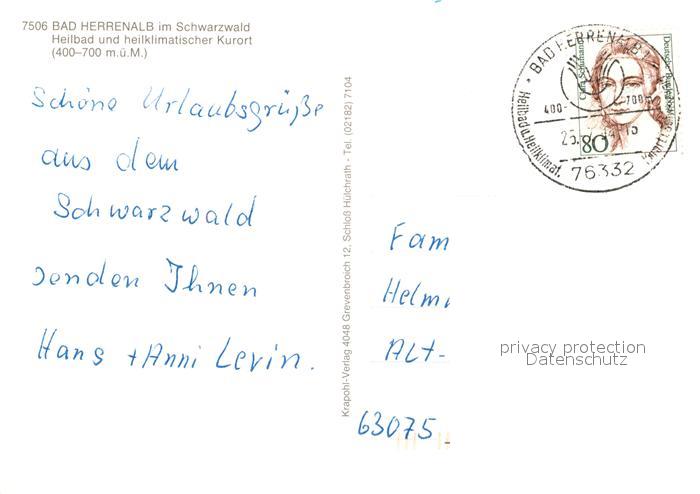 7506 BAD HERRENALB im Schwarzwald
Heilbad und heilklimatischer Kurort
(400–700 m.ü.M.)
Schöne Urlaubsgrüße
aus dem
Schwarzwald
senden Ihnen
Hans + Anni Levin.
Krapohl-Verlag 4048 Grevenbroich 12, Schloß Hülchrath - Tel. (02182) 7104
BAD HERRENALB
400- -700m
Heilbad u. Heilklimat. Kurort
76332
Clara Schumann
Deutsche Bundespost
80
Fam
Helm
Alt-
63075
privacy protection
Datenschutz